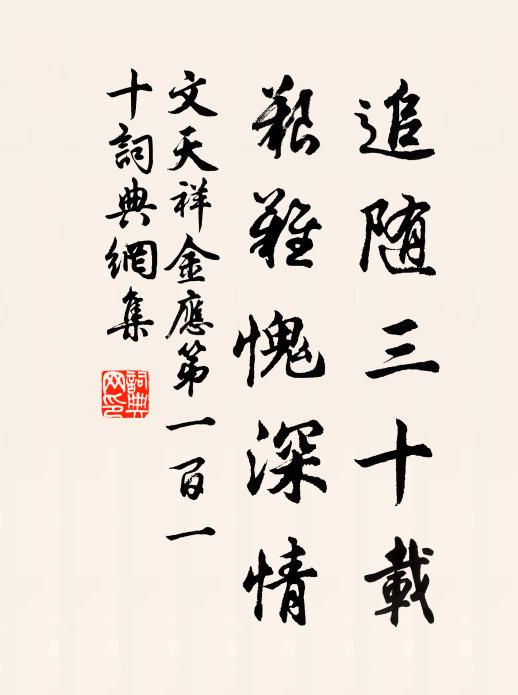 追随三十載
艱難愧深情
文天祥金應第一百一
十詞典網集
詞典網印